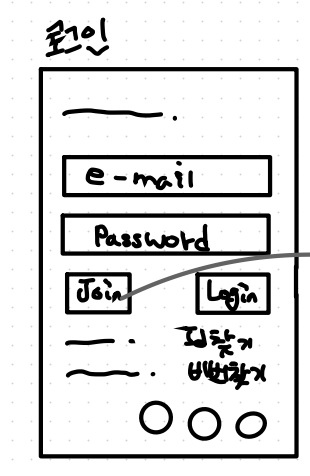 로그인
e-mail
Password
Join Login
Id찾기
비번찾기